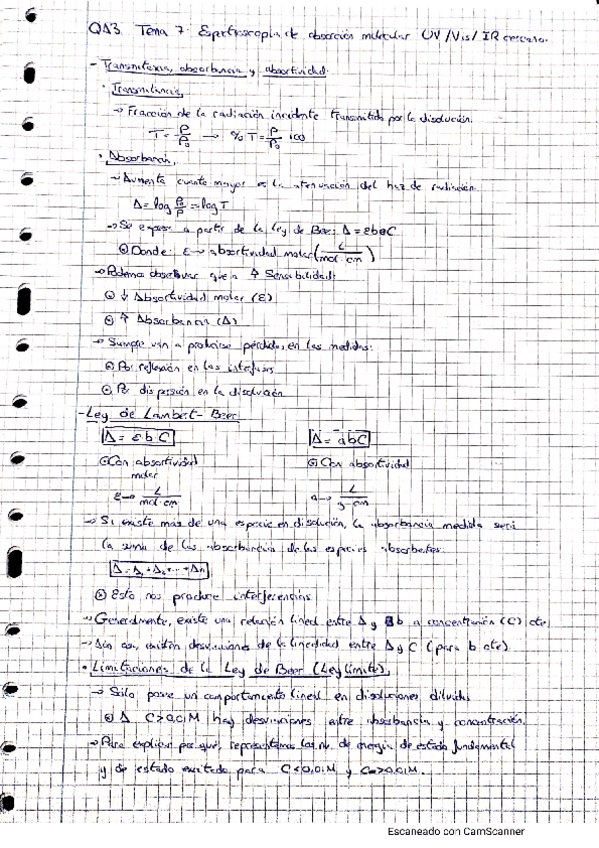 QA3. Tema 7. Espectroscopia de absorción molecular UV/Vis/IR cercano.
- Transmitancia, absorbancia y absortividad.
· Transmitancia,
→ Fracción de la radiación incidente transmitida por la disolución.
T = P/P₀ → %T = P/P₀ · 100
· Absorbancia,
→ Aumenta cuanto mayor es la atenuación del haz de radiación.
A = log P₀/P = -log T
→ Se expresa a partir de la Ley de Beer: A = εbC
⊙ Donde: ε → absortividad molar (L/mol·cm)
→ Podemos observar que a ↑ Sensibilidad:
⊙ ↓ Absortividad molar (ε)
⊙ ↑ Absorbancia (A)
→ Siempre van a producirse pérdidas en las medidas:
⊙ Por reflexión en las interfases
⊙ Por dispersión en la disolución
- Ley de Lambert-Beer
A = εbC A = abC
⊙ Con absortividad molar ⊙ Con absortividad
ε → L/mol·cm a → L/g·cm
→ Si existe más de una especie en disolución, la absorbancia medida será
la suma de las absorbancias de las especies absorbentes.
A = A₁ + A₂ + ... + An
⊙ Esto nos produce interferencias
→ Generalmente, existe una relación lineal entre A y b a concentración (C) cte
→ Sin existen desviaciones de la linealidad entre A y C (para b cte)
· Limitaciones de la Ley de Beer (Ley límite),
→ Sólo posee un comportamiento lineal en disoluciones diluidas
⊙ A C>0,01M hay desviaciones entre absorbancia y concentración.
→ Para explicar por qué, representamos los niv. de energía de estado fundamental
y de estado excitado para C<0,01M y C>0,01M.
Escaneado con CamScanner